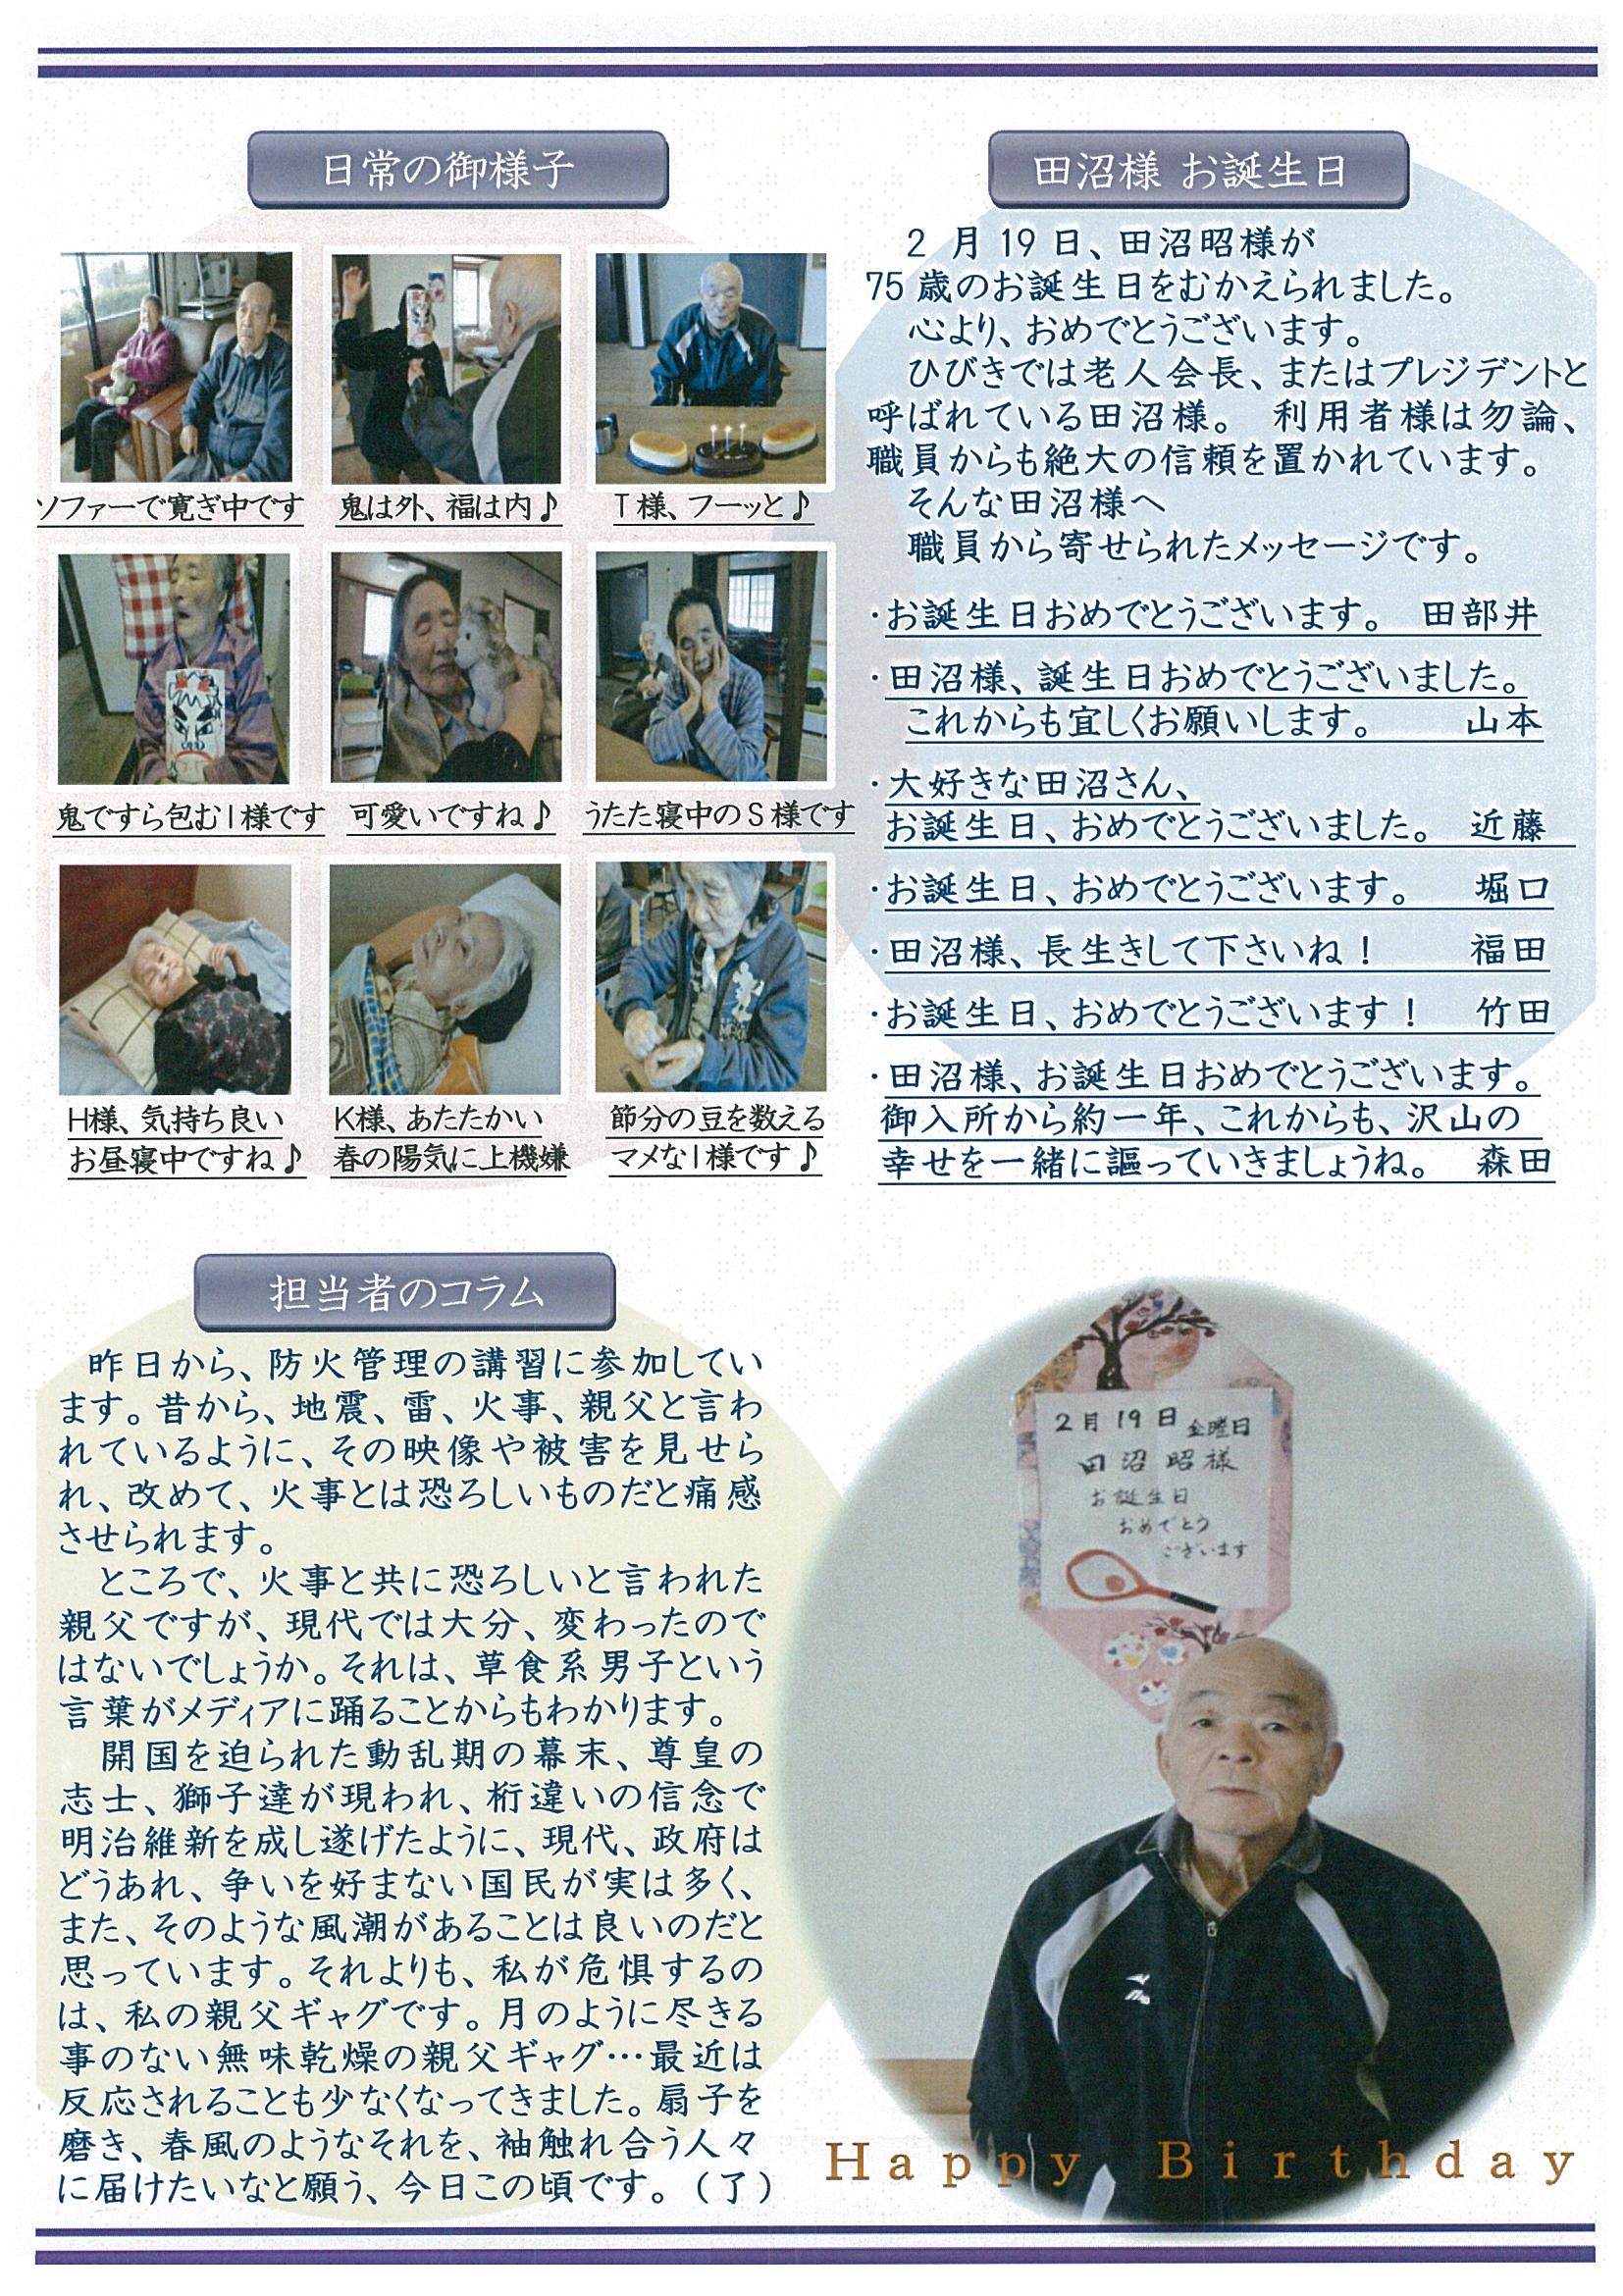 日常の御様子
ソファーで寛ぎ中です
鬼は外、福は内♪
T様、フーッと♪
鬼ですら包むI様です
可愛いですね♪
うたた寝中のS様です
H様、気持ち良い
お昼寝中ですね♪
K様、あたたかい
春の陽気に上機嫌
節分の豆を数える
マメなI様です♪
田沼様 お誕生日
2月19日、田沼昭様が
75歳のお誕生日をむかえられました。
心より、おめでとうございます。
ひびきでは老人会長、またはプレジデントと
呼ばれている田沼様。 利用者様は勿論、
職員からも絶大の信頼を置かれています。
そんな田沼様へ
職員から寄せられたメッセージです。
・お誕生日おめでとうございます。 田部井
・田沼様、誕生日おめでとうございました。
これからも宜しくお願いします。 山本
・大好きな田沼さん、
お誕生日、おめでとうございました。 近藤
・お誕生日、おめでとうございます。 堀口
・田沼様、長生きして下さいね！ 福田
・お誕生日、おめでとうございます！ 竹田
・田沼様、お誕生日おめでとうございます。
御入所から約一年、これからも、沢山の
幸せを一緒に謳っていきましょうね。 森田
担当者のコラム
昨日から、防火管理の講習に参加してい
ます。昔から、地震、雷、火事、親父と言わ
れているように、その映像や被害を見せら
れ、改めて、火事とは恐ろしいものだと痛感
させられます。
ところで、火事と共に恐ろしいと言われた
親父ですが、現代では大分、変わったので
はないでしょうか。それは、草食系男子という
言葉がメディアに踊ることからもわかります。
開国を迫られた動乱期の幕末、尊皇の
志士、獅子達が現われ、桁違いの信念で
明治維新を成し遂げたように、現代、政府は
どうあれ、争いを好まない国民が実は多く、
また、そのような風潮があることは良いのだと
思っています。それよりも、私が危惧するの
は、私の親父ギャグです。月のように尽きる
事のない無味乾燥の親父ギャグ…最近は
反応されることも少なくなってきました。扇子を
磨き、春風のようなそれを、袖触れ合う人々
に届けたいなと願う、今日この頃です。（了）
2月19日 金曜日
田沼昭様
お誕生日
おめでとう
ございます
Happy Birthday